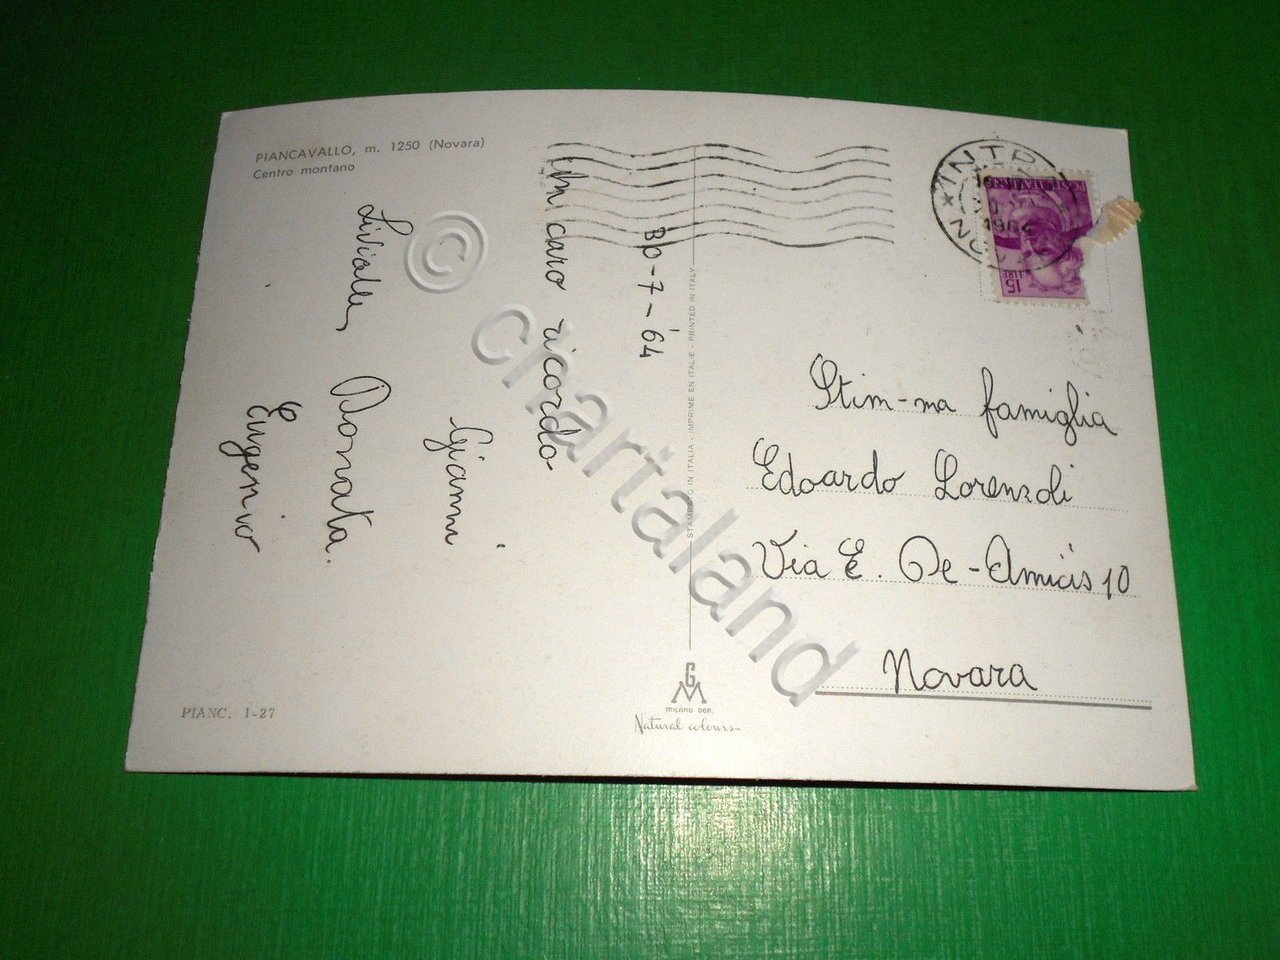 PIANCAVALLO, m. 1250 (Novara)
Centro montano
30-7-'64
Un caro ricordo
Gianni
Donata
Eugenio
STAMPATO IN ITALIA - IMPRIME EN ITALIE - PRINTED IN ITALY
GM
MILANO DEP.
Natural colours
PIANC. 1-27
1964
15
LIRE
Stim-ma famiglia
Edoardo Lorenzoli
Via E. De-Amicis 10
Novara
© chartaland